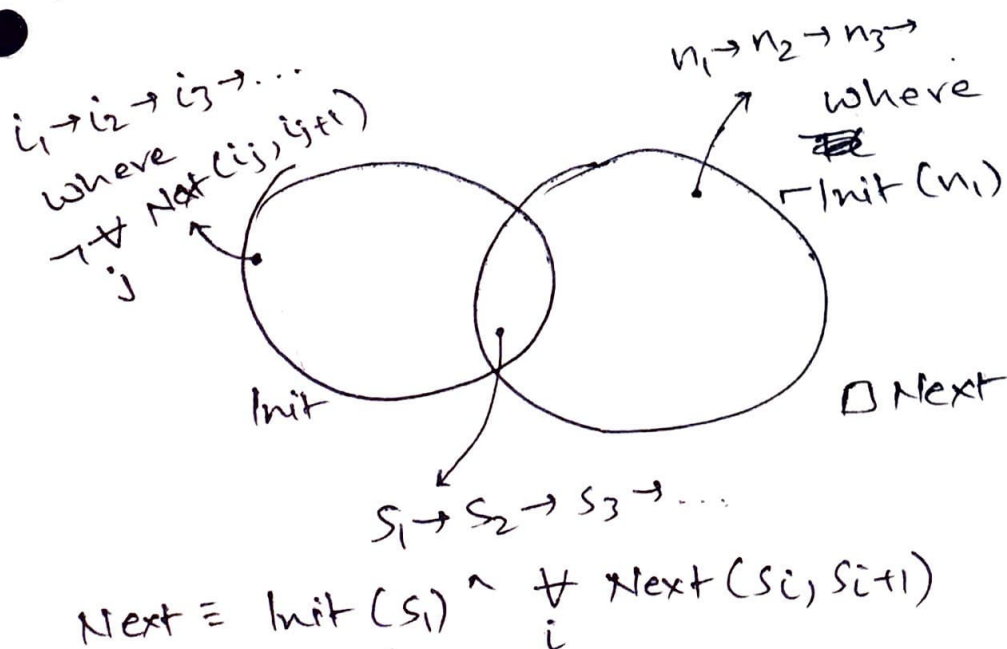 i₁→i₂→i₃→...
where
¬∀ Next(ij, ij+1)
j
n₁→n₂→n₃→
where
¬Init(n₁)
Init
□ Next
S₁→S₂→S₃→...
Next ≡ Init(S₁) ^ ∀ Next(Si, Si+1)
i